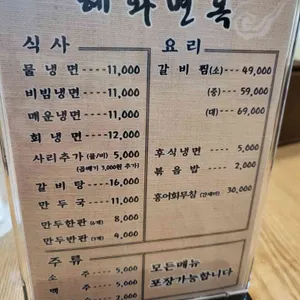 혜화면옥
식사
물냉면 ---- 11,000
비빔냉면 ---- 11,000
매운냉면 ---- 11,000
회냉면 ---- 12,000
사리추가 (물/비) 5,000
(곱빼기 3,000원 추가)
갈비탕 ---- 16,000
만두국 ---- 11,000
만두한판 (6개) 8,000
만두반판 (3개) 4,000
주류
소주 ---- 5,000
맥주 ---- 5,000
2,000
요리
갈비찜(소) ---- 49,000
(중) ---- 59,000
(대) ---- 69,000
후식냉면 ---- 5,000
볶음밥 ---- 2,000
홍어회무침 30,000
모든메뉴
포장가능합니다